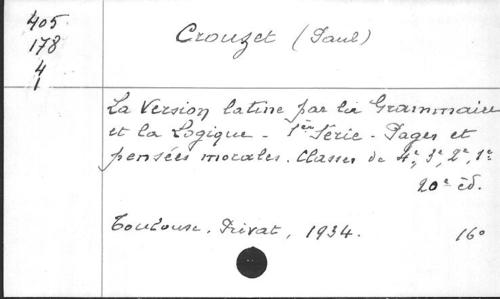 405
178
4
1
Crouzet (Paul)
La Version latine par la Grammaire
et la Logique - 1ère Série - Pages et
pensées morales. Classes de 4e, 3e, 2e, 1e
20e éd.
Toulouse, Privat, 1934. 16o